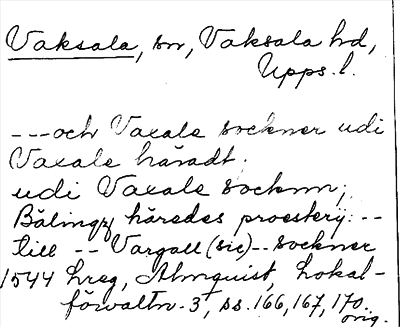 Vaksala, sn, Vaksala hd,
Upps. l.
---och Vaxale sockner udi
Vaxale häradt.
udi Vaxale socknn;
Bälingz häredes proesterij: --
till -- Vargall (sic) -- sockner
1544 hreg, Almquist, Lokal-
förvaltn. 3, ss. 166, 167, 170.
orig.